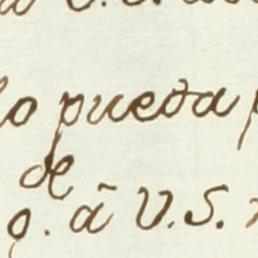 lo pueda
de
g. ã V.S.